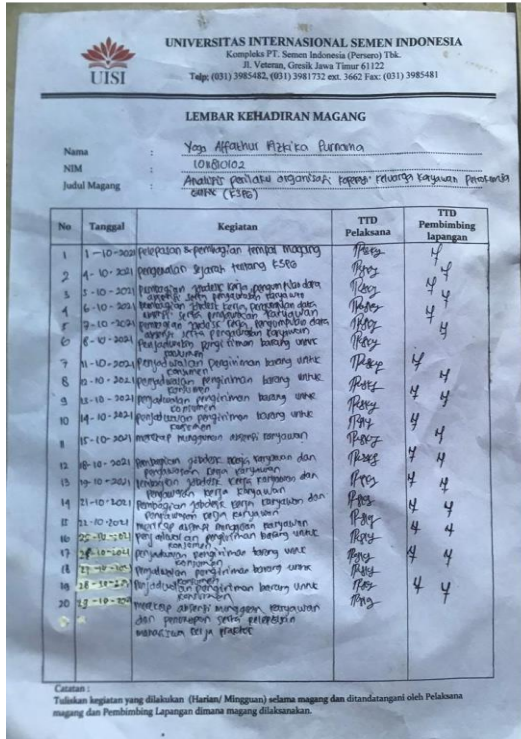 UISI
UNIVERSITAS INTERNASIONAL SEMEN INDONESIA
Kompleks PT. Semen Indonesia (Persero) Tbk.
Jl. Veteran, Gresik Jawa Timur 61122
Telp: (031) 3985482, (031) 3981732 ext. 3662 Fax: (031) 3985481
LEMBAR KEHADIRAN MAGANG
Nama : Yoga Affathur Rizkika Purnama
NIM :
Judul Magang : Analisis perilaku organisasi koperasi keluarga karyawan
(KSPG)
No Tanggal Kegiatan TTD Pelaksana TTD Pembimbing lapangan
1 1-10-2021 pelepasan & pembagian tempat magang
2 4-10-2021 pengenalan sejarah tentang KSPG
3 5-10-2021 pembagian jobdesk kerja, pengumpulan data
absensi serta pengawasan karyawan
4 6-10-2021 pembagian jobdesk kerja, pengumpulan data
absensi serta pengawasan karyawan
5 7-10-2021 pembagian jobdesk kerja, pengumpulan data
absensi serta pengawasan karyawan
6 8-10-2021 penjadwalan pengiriman barang untuk
7 11-10-2021 penjadwalan pengiriman barang untuk
konsumen
8 12-10-2021 penjadwalan pengiriman barang untuk
konsumen
9 13-10-2021 penjadwalan pengiriman barang untuk
konsumen
10 14-10-2021 penjadwalan pengiriman barang untuk
konsumen
11 15-10-2021 merekap mingguan absensi karyawan
12 18-10-2021 pembagian jobdesk kerja karyawan dan
pengawasan kerja karyawan
13 19-10-2021 pembagian jobdesk kerja karyawan dan
pengawasan kerja karyawan
14 21-10-2021 pembagian jobdesk kerja karyawan dan
pengawasan kerja karyawan
15 22-10-2021 merekap absensi mingguan karyawan
16 penjadwalan pengiriman barang untuk
konsumen
17 penjadwalan pengiriman barang untuk
konsumen
18 penjadwalan pengiriman barang untuk
konsumen
19 penjadwalan pengiriman barang untuk
konsumen
20 merekap absensi mingguan karyawan
dan penutupan serta pelepasan
mahasiswa kerja praktek
Catatan :
Tuliskan kegiatan yang dilakukan (Harian/ Mingguan) selama magang dan ditandatangani oleh Pelaksana
magang dan Pembimbing Lapangan dimana magang dilaksanakan.